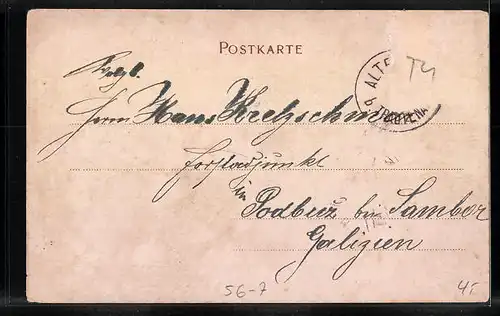 POSTKARTE
Wohlgb.
Herrn Hans Kretzschmer
Forstadjunkt
in
Podbuz bei Sambor
Galizien
ALTE
56-7